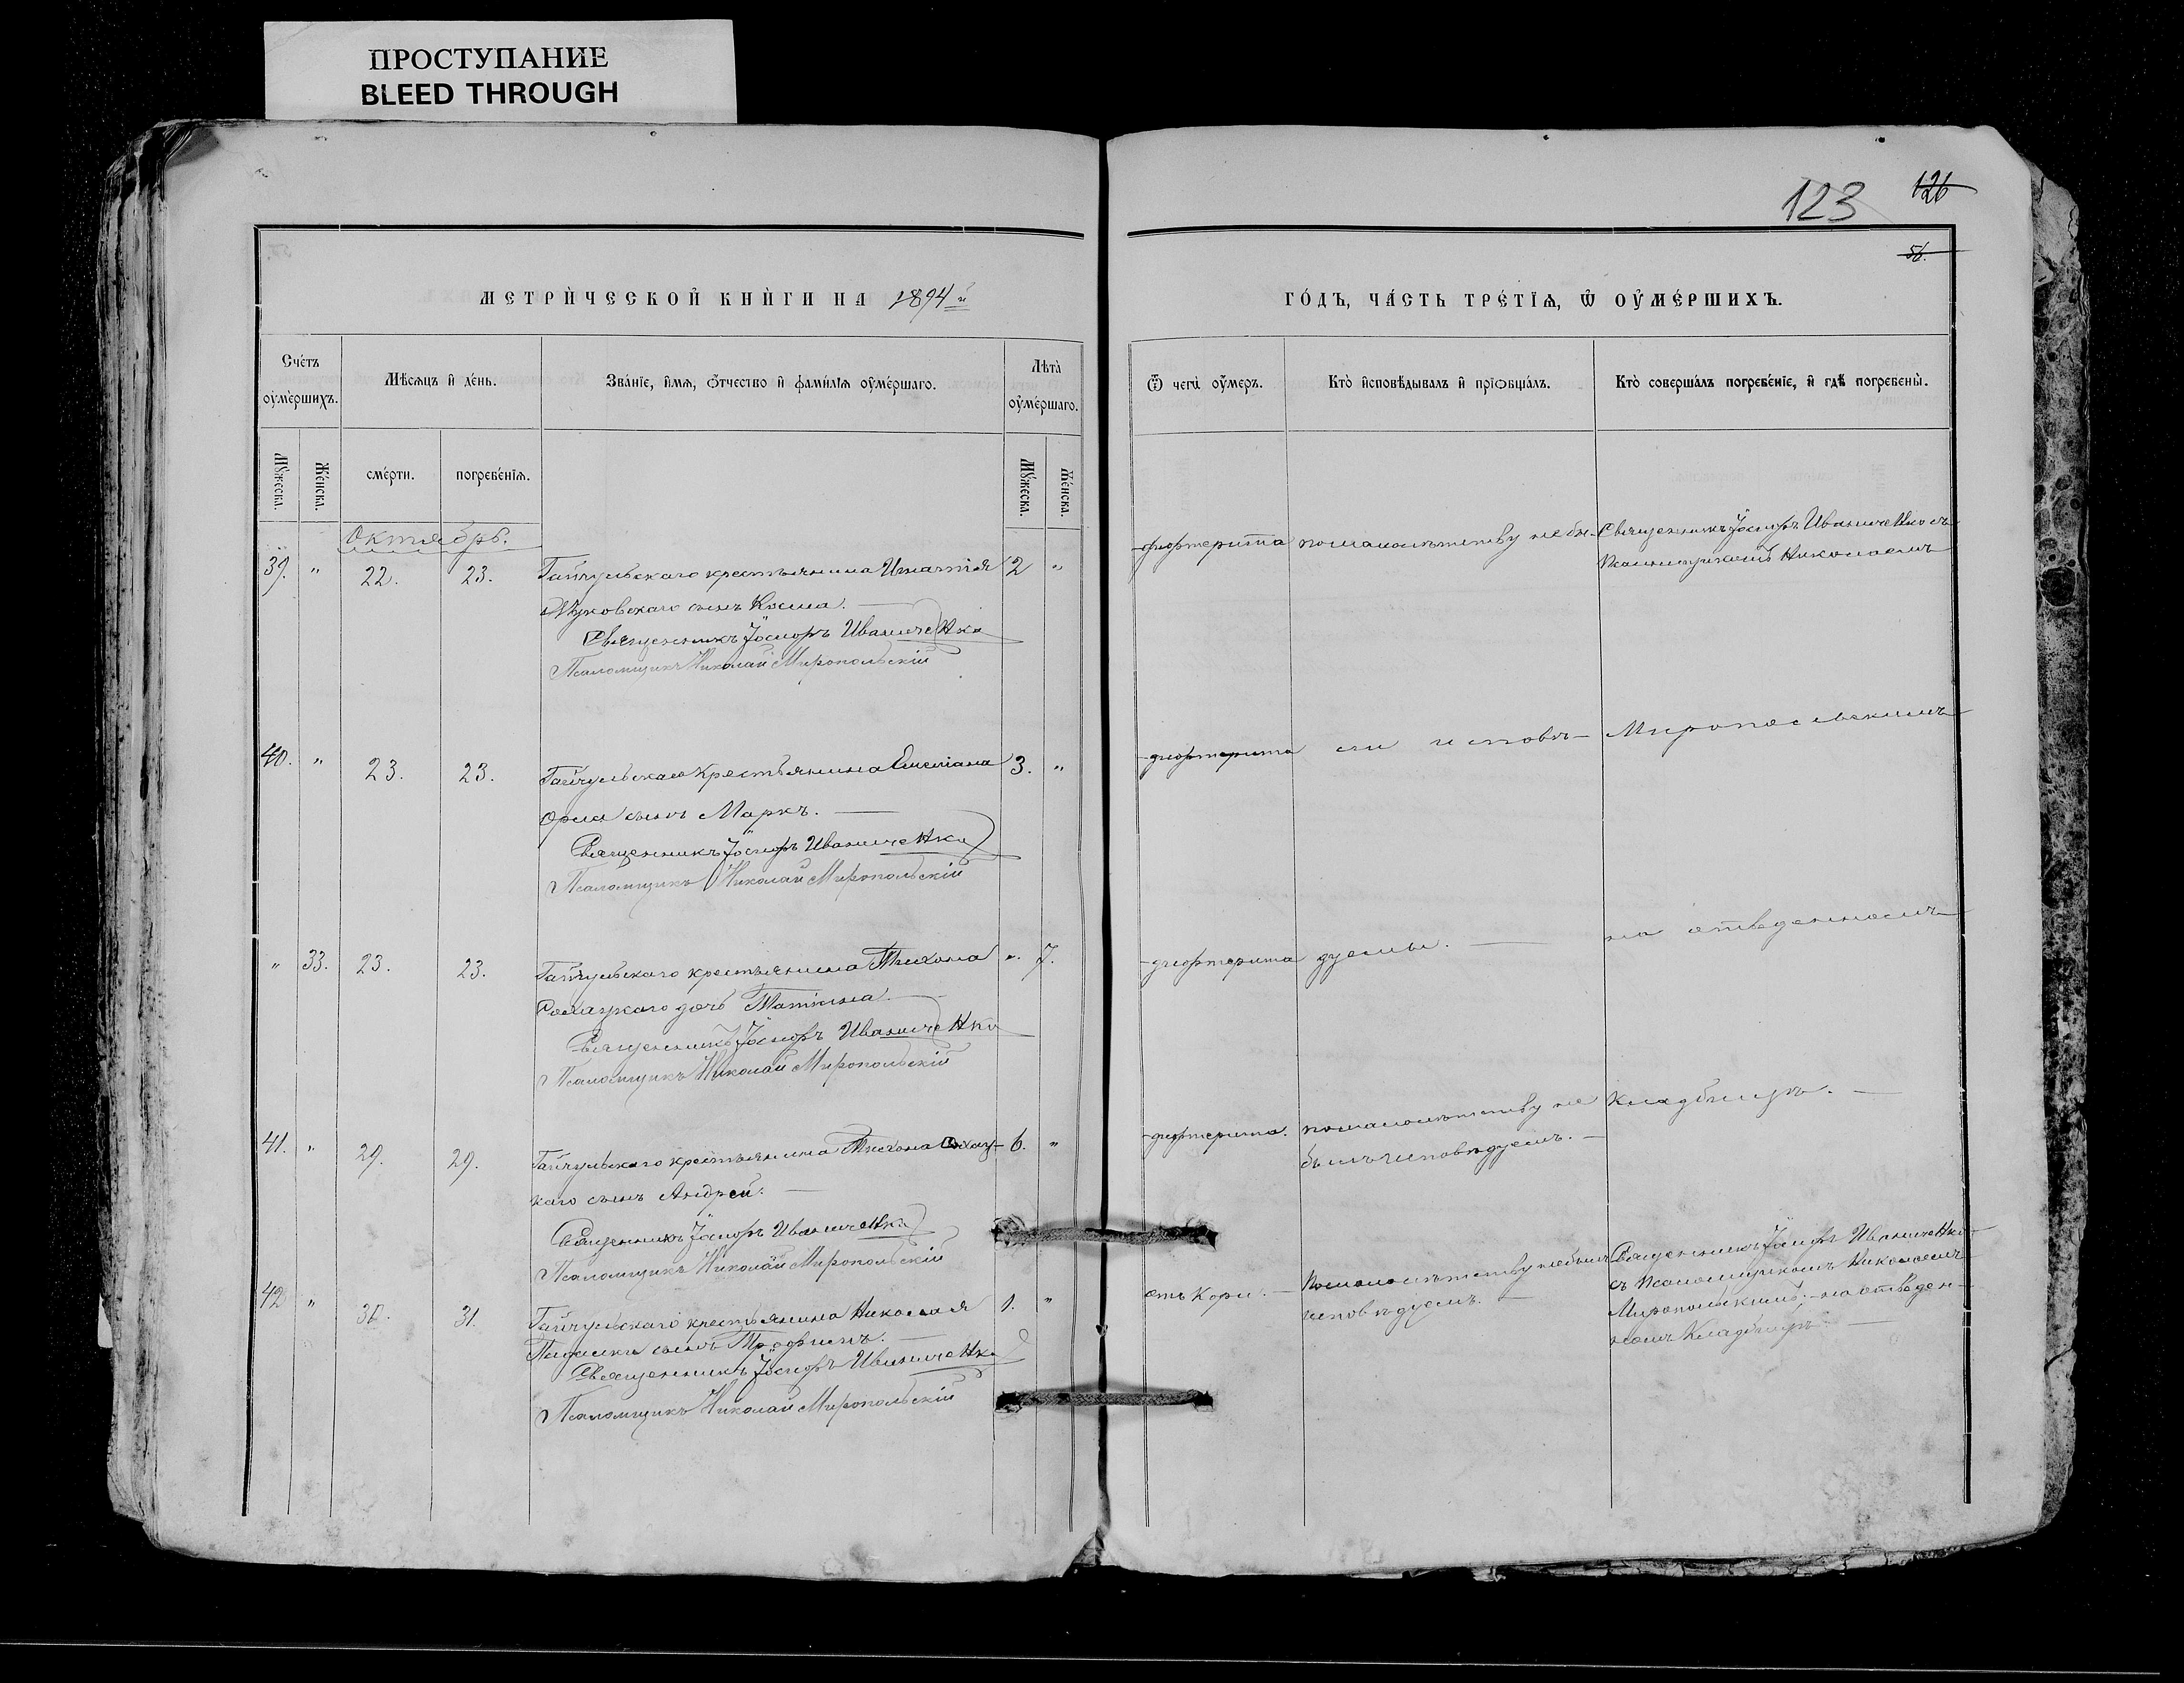 ПРОСТУПАНИЕ
BLEED THROUGH
123 126
56.
МЕТРИ́ЧЕСКОЙ КНИ́ГИ НА 1894й
ГО́ДЪ, ЧА́СТЬ ТРЕ́ТІѦ, Ѡ҆ ОУ҆МЕ́РШИХЪ.
Сче́тъ оу҆ме́ршихъ.
Мѣ́сѧцъ и҆ де́нь.
Зва́нїе, и҆́мѧ, ѻ҆́тчество и҆ фами́лїѧ оу҆ме́ршаго.
Лѣ́та̀ оу҆ме́ршаго.
Ѿ чегѡ̀ оу҆́меръ.
Кто̀ и҆сповѣ́дывалъ и҆ прїѡбща́лъ.
Кто̀ соверша́лъ погребе́нїе, и҆ гдѣ̀ погребены̀.
Мꙋ́жеска.
Же́нска.
сме́рти.
погребе́нїѧ.
Мꙋ́жеска.
Же́нска.
Октябрь.
39. " 22. 23. Гайчульскаго крестьянина Игнатія 2 "
сынъ Косма.
Священникъ Іосифъ Иваниченко
Псаломщикъ Николай Миропольскій
дифтерита по малолѣтству не бы-
Священникъ Іосифъ Иваниченко съ
Псаломщикомъ Николаемъ
40. " 23. 23. Гайчульскаго крестьянина Симеона 3. "
Орла сынъ Маркъ.
Священникъ Іосифъ Иваниченко
Псаломщикъ Николай Миропольскій
дифтерита ли исповѣ- Миропольскимъ
" 33. 23. 23. Гайчульскаго крестьянина Тихона ". 7.
дочь Татіана.
Священникъ Іосифъ Иваниченко
Псаломщикъ Николай Миропольскій
дифтерита дуемы. на отведенномъ
41. " 29. 29. Гайчульскаго крестьянина Тихона 6. "
каго сынъ Андрей.
Священникъ Іосифъ Иваниченко
Псаломщикъ Николай Миропольскій
дифтерита. по малолѣтству не
былъ исповѣдуемъ.
Кладбищѣ.
42 " 30. 31. Гайчульскаго крестьянина Николая 1. "
сынъ Трофимъ.
Священникъ Іосифъ Иваниченко
Псаломщикъ Николай Миропольскій
отъ Кори. По малолѣтству не былъ
исповѣдуемъ.
Священникъ Іосифъ Иваниченко
съ Псаломщикомъ Николаемъ
Миропольскимъ, на отведен-
номъ Кладбищѣ.